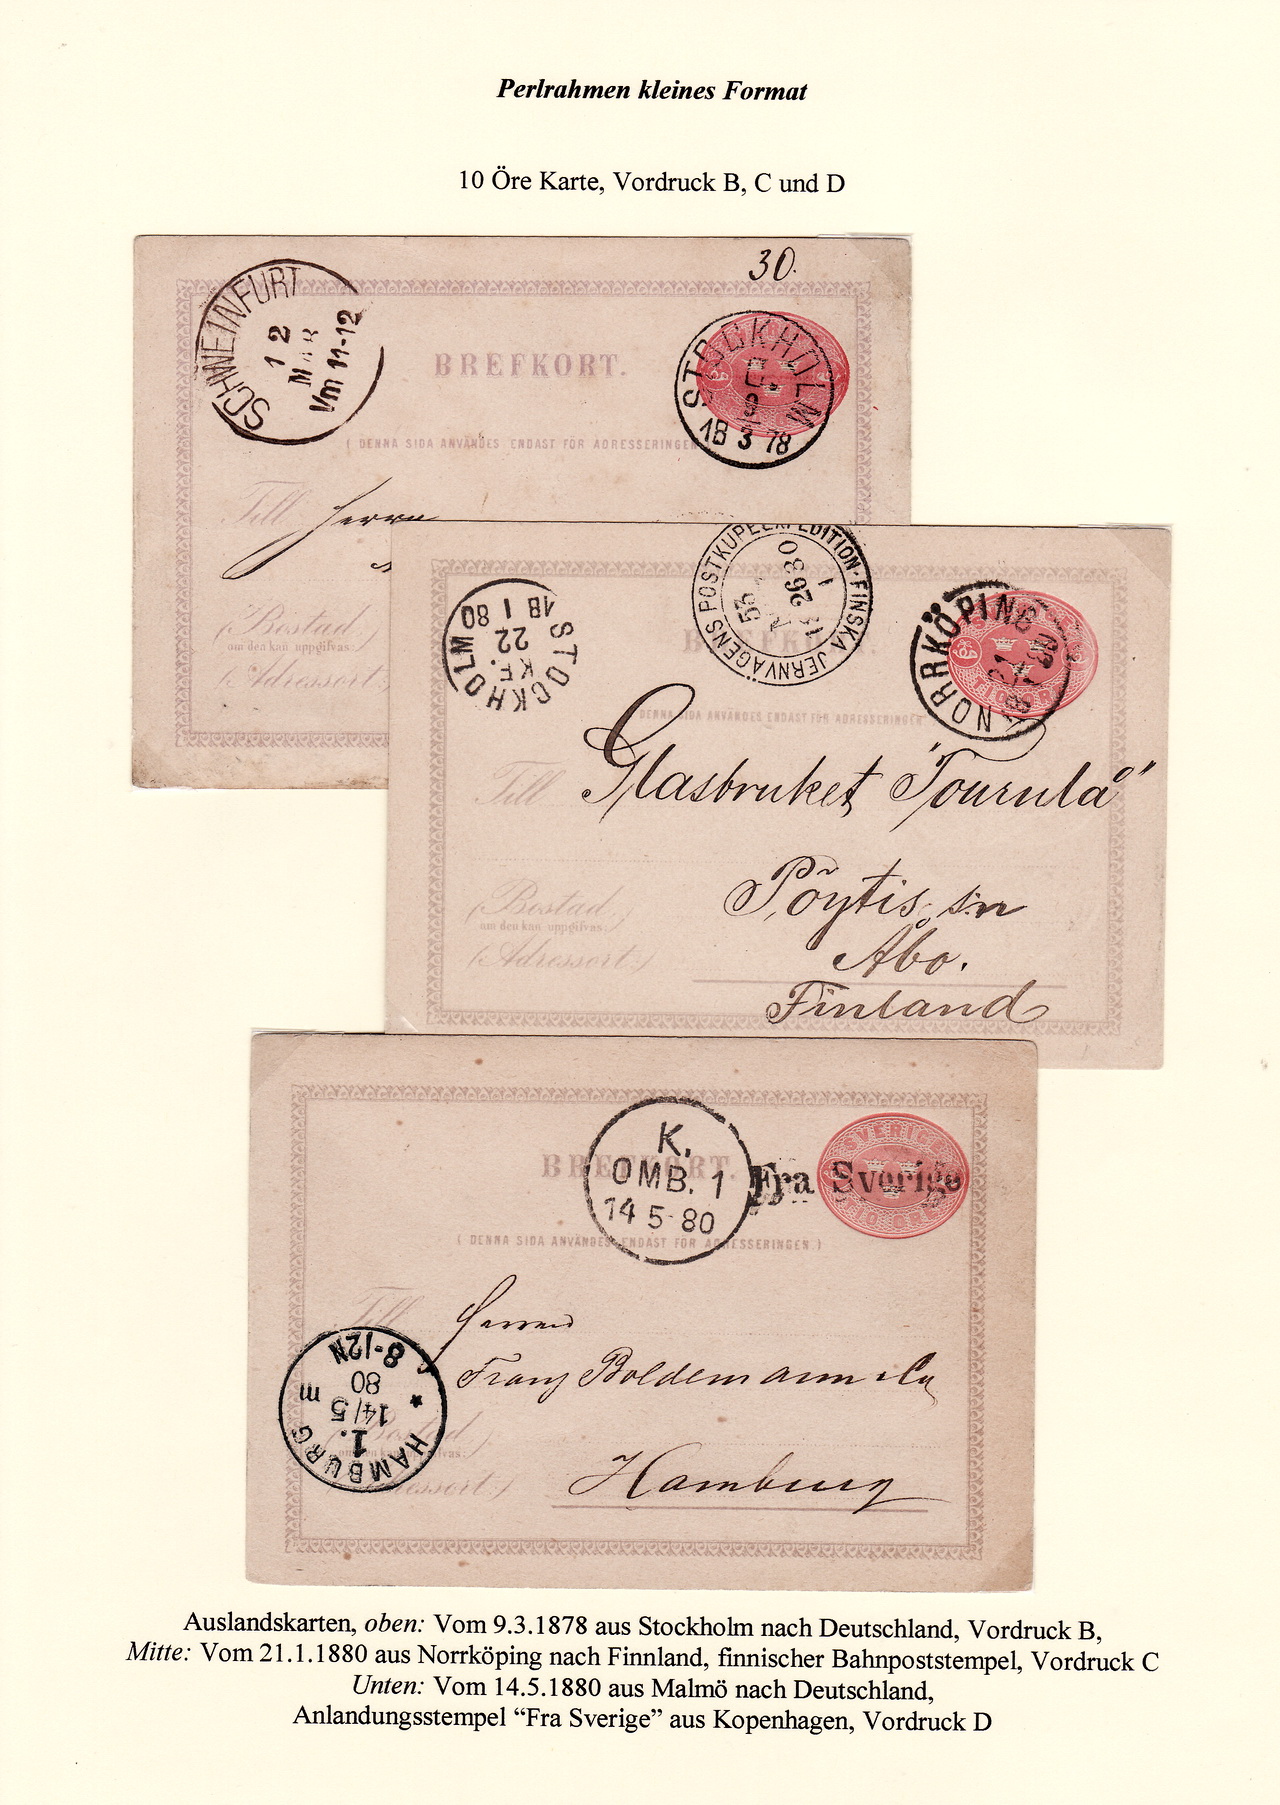 Perlrahmen kleines Format
10 Öre Karte, Vordruck B, C und D
30.
SCHWEINFURT
12
MAR
Vm 11-12
BREFKORT.
STOCKHOLM
9
18 3 78
( DENNA SIDA ANVÄNDES ENDAST FÖR ADRESSERINGEN
Till Herrn
(Bostad
om den kan uppgifvas:
Adressort:
FINSKA JERNVÄGENS POSTKUPEEXPEDITION
STOCKHOLM
K.E.
22
18 1 80
NORRKÖPING
21
DENNA SIDA ANVÄNDES ENDAST FÖR ADRESSERINGEN
Till Glasbruket "Tourula"
Pöytis s:n
(Bostad
om den kan uppgifvas:
Åbo.
(Adressort:)
Finland
BREFKORT.
K.
OMB. 1
14 5 80
Fra Sverige
SVERIGE
TIO ÖRE
( DENNA SIDA ANVÄNDES ENDAST FÖR ADRESSERINGEN.)
Till Herren
Franz Boldemann & Co
HAMBURG
1.
14/5
80
8-12N
Hamburg
Auslandskarten, oben: Vom 9.3.1878 aus Stockholm nach Deutschland, Vordruck B,
Mitte: Vom 21.1.1880 aus Norrköping nach Finnland, finnischer Bahnpoststempel, Vordruck C
Unten: Vom 14.5.1880 aus Malmö nach Deutschland,
Anlandungsstempel “Fra Sverige” aus Kopenhagen, Vordruck D